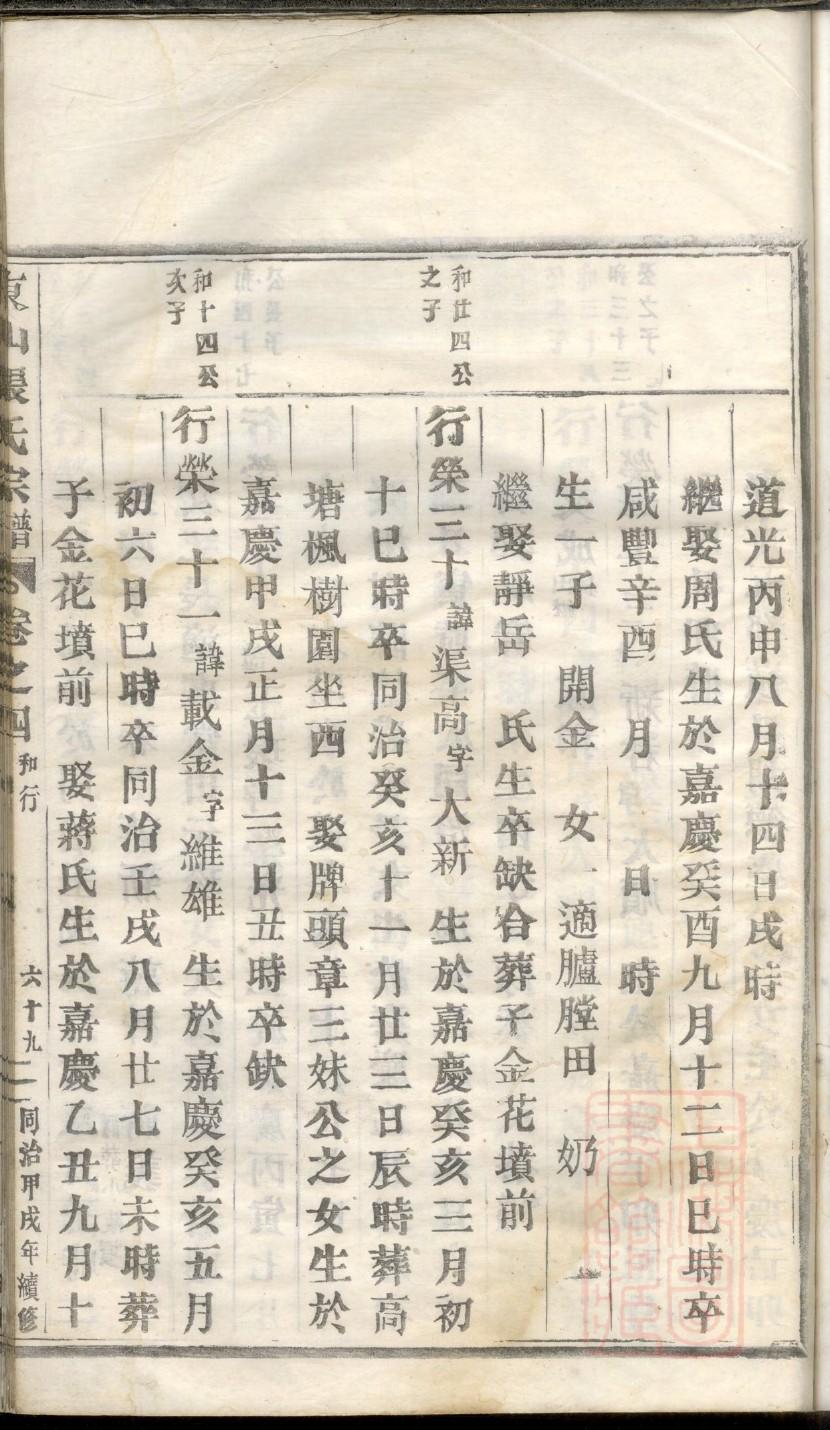 道光丙申八月十四日戌時
繼娶周氏生於嘉慶癸酉九月十二日巳時卒
咸豐辛酉 月 日 時
生一子 開金 女一適臚膛田 奶
繼娶靜岳 氏生卒缺合葬子金花墳前
和廿四公
之子
行榮三十諱渠高字大新 生於嘉慶癸亥三月初
十巳時卒同治癸亥十一月廿三日辰時葬高
塘楓樹園坐西於 娶牌頭章三妹公之女生於
嘉慶甲戌正月十三日丑時卒缺
和十四公
次子
行榮三十一諱載金字維雄 生於嘉慶癸亥五月
初六日巳時卒同治壬戌八月廿七日未時葬
子金花墳前 娶蔣氏生於嘉慶乙丑九月十
山張氏宗譜 卷之四 和行 六十九 同治甲戌年續修